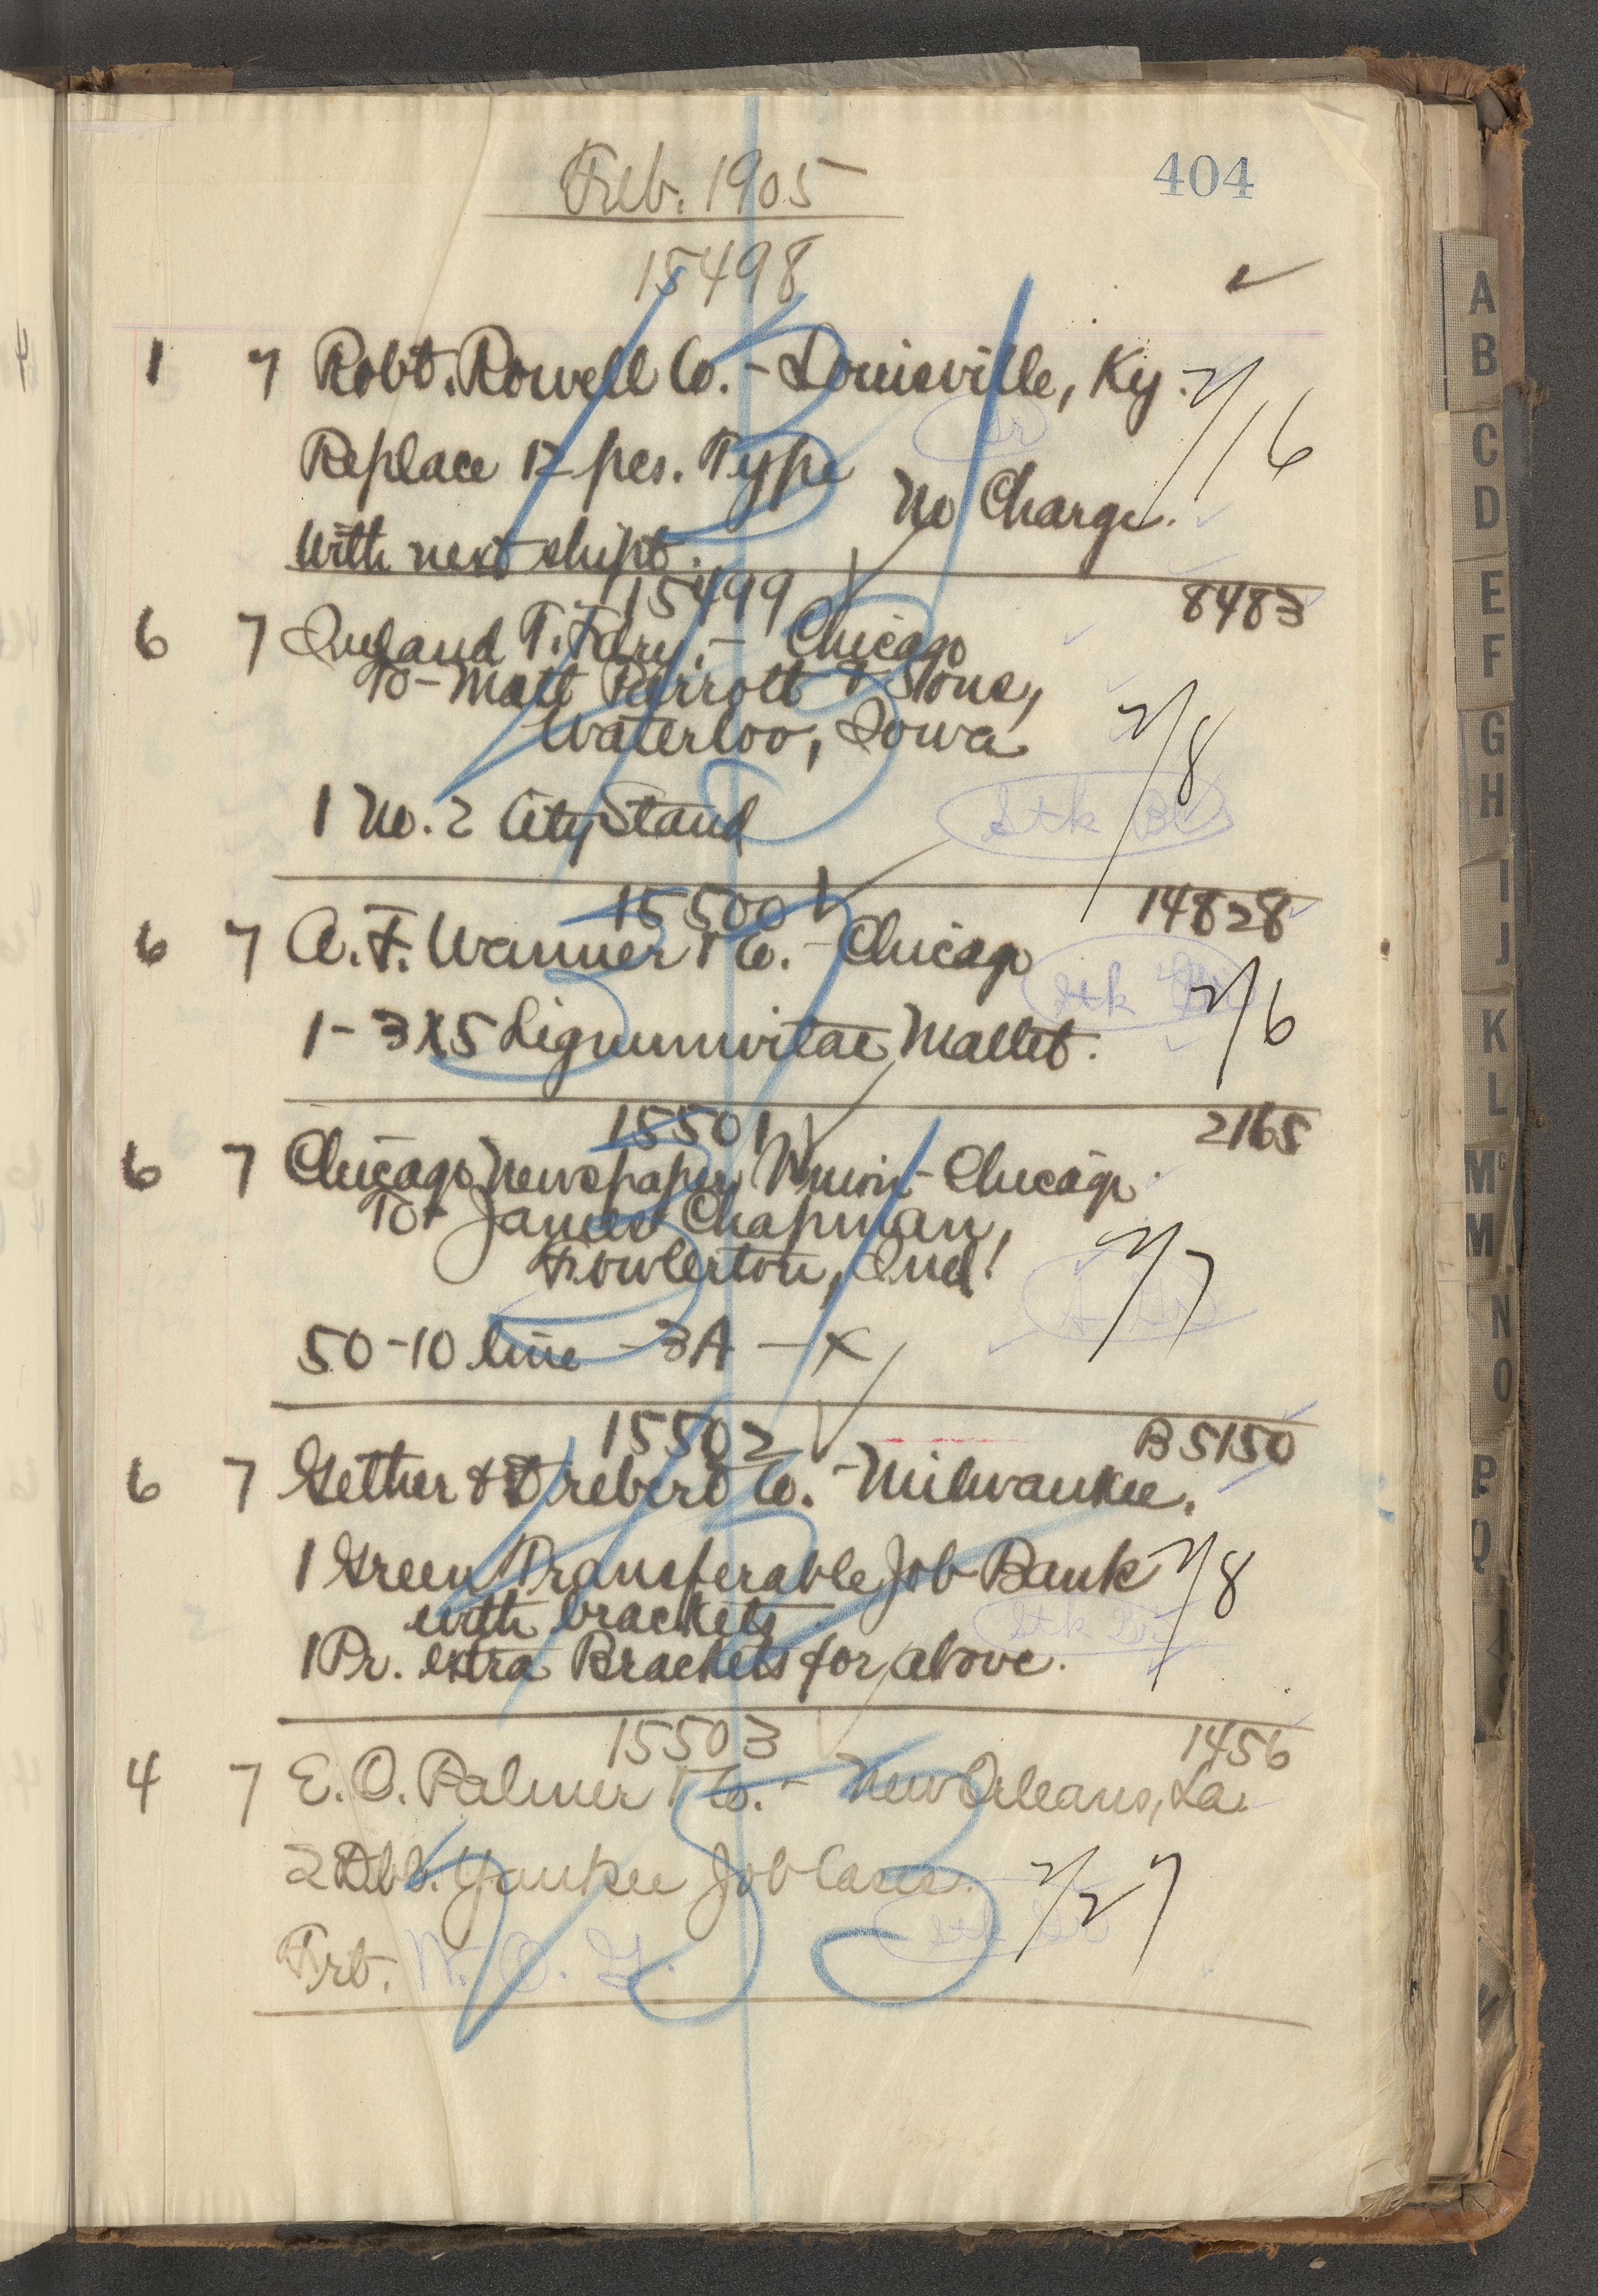 Feb. 1905
404
15498
1 7 Robt. Rowell Co. - Louisville, Ky. 2/16
Replace 12 pcs. Type
No Charge.
With next shipt.
15499
8483
6 7 Inland T. Fdry. - Chicago
To - Matt Parrott & Sons,
Waterloo, Iowa
2/8
1 No. 2 City Stand
Stk
15500
14828
6 7 A. F. Wanner & Co. - Chicago
Stk
2/6
1 - 3x5 Lignumvitae Mallet.
15501
2165
6 7 Chicago Newspaper Union - Chicago
To - James Chapman,
Fowlerton, Ind.
2/7
50 - 10 line - 3A - X
15502
B5150
6 7 Gether & Drebert Co. - Milwaukee.
1 Green Transferable Job Bank 2/8
with brackets
Stk
1 Pr. extra Brackets for above.
15503
1456
4 7 E. O. Palmer & Co. - New Orleans, La.
2 Dbl. Yankee Job Cases.
2/27
Stk
Frt. N. O. G.
A
B
C
D
E
F
G
H
I
J
K
L
Mc
M
N
O
P
Q